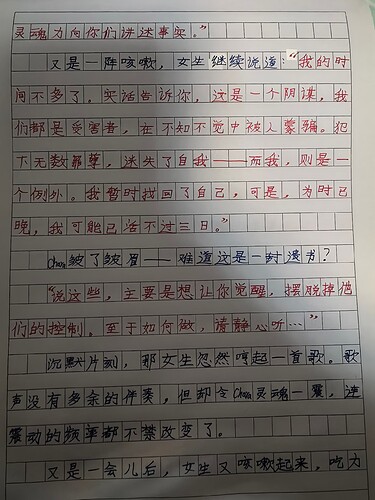 灵魂力向你们讲述事实。”
又是一阵咳嗽，女生继续说道：“我的时
间不多了，实话告诉你，这是一个阴谋，我
们都是受害者，在不知不觉中被人蒙骗。犯
下无数罪孽，迷失了自我——而我，则是一
个例外。我暂时找回了自己，可是，为时已
晚，我可能已活不过三日。”
Chara皱了皱眉——难道这是一封遗书？
“说这些，主要是想让你觉醒，摆脱掉他
们的控制。至于如何做，请静心听…”
沉默片刻，那女生忽然哼起一首歌。歌
声没有多余的伴奏，但却令Chara灵魂一震，连
震动的频率都不禁改变了。
又是一会儿后，女生又咳嗽起来，吃力